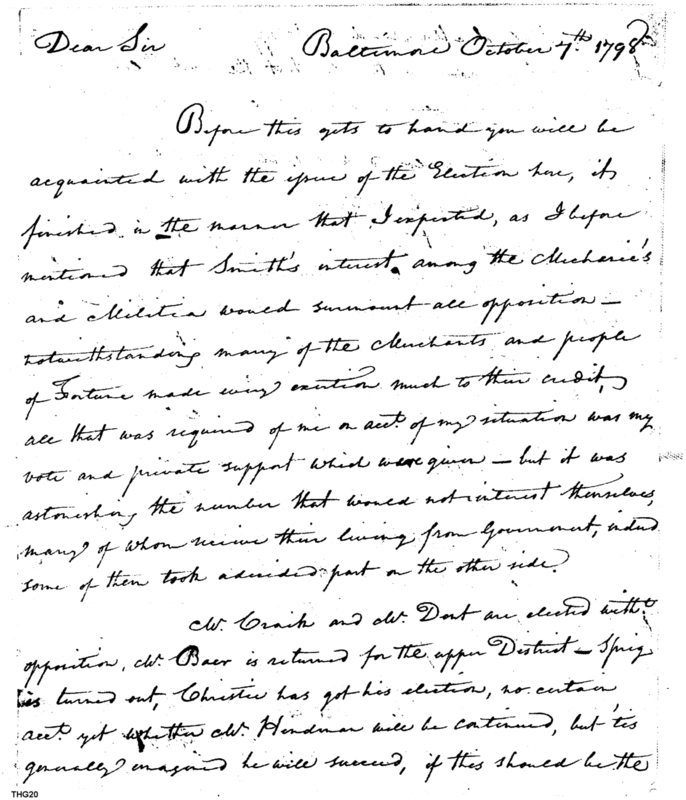 Dear Sir Baltimore October 7th. 1798
Before this gets to hand you will be
acquainted with the issue of the Election here, it
finished in the manner that I expected, as I before
mentioned that Smith's interest among the Mechanic's
and Militia would surmount all opposition —
notwithstanding many of the Merchants and people
of Fortune made every exertion much to their credit,
all that was required of me on acct. of my situation was my
vote and private support which were given — but it was
astonishing the number that would not interest themselves,
many of whom receive their living from Government, indeed
some of them took a decided part on the other side.
Mr. Craik and Mr. Dent are elected witht.
opposition, Mr. Baer is returned for the upper District — Sprig
is turned out, Christie has got his election, no certain
acct. yet whether Mr. Hindman will be continued, but tis
generally imagined he will succeed, if this should be the
THG20